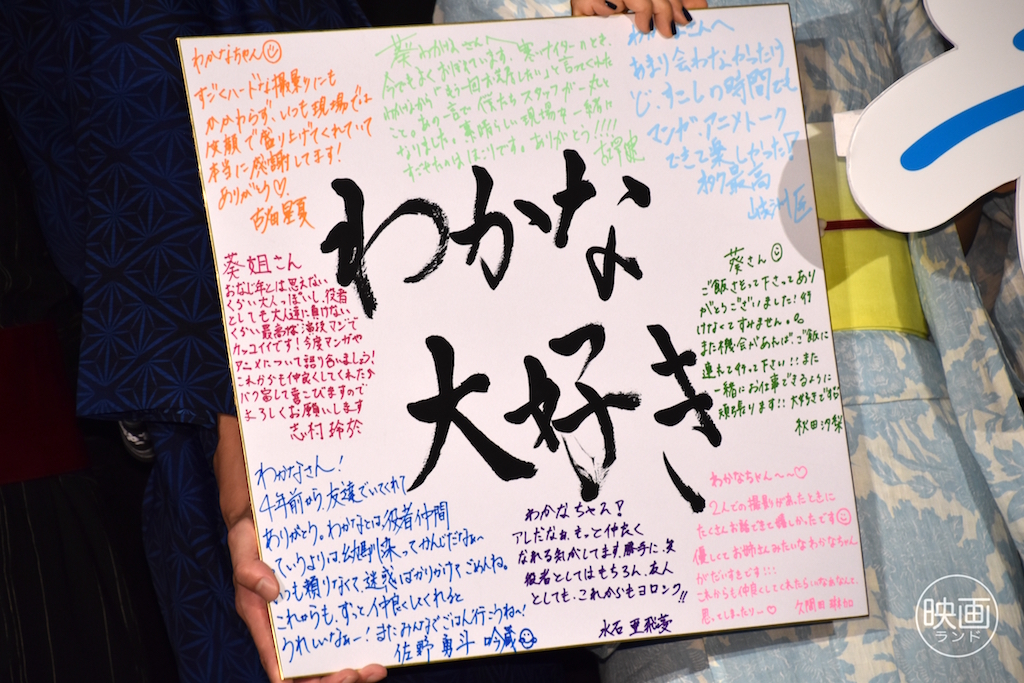 わかなちゃん
すごくハードな撮影にも
かかわらず、いつも現場では
笑顔で盛り上げてくれていて
本当に感謝してます!
ありがとう♡
葵わかなさんへ
寒いナイターのとき、
今でもよくおぼえています。
「もう一回お芝居したい」と言ってくれた
こと。あの一言で俺たちスタッフが一丸と
なりました。素晴らしい現場を一緒に
すごせたのはほこりです。ありがとう!!!!
わかなさんへ
あまり会わなかったけ
ど、少しの時間でも
マンガ・アニメトーク
できて楽しかった!
ヲタク最高
岐洲匠
わかな
大好き
葵姐さん
おなじ年とは思えない
くらい大人っぽいし、役者
としても大人達に負けない
くらい最高な演技マンで
カッコイイです!今度マンガや
アニメについて語り合いましょう!
これからも仲良くしてくれたら
バク宙して喜びますので
よろしくお願いします
志村玲於
葵さん
ご飯さそって下さってあり
がとうございました!行
けなくてすみません。
また機会があれば、ご飯に
連れて行って下さい!!また
一緒にお仕事できるように
頑張ります!!大好きです
秋田汐梨
わかなさん!
4年前から、友達でいてくれて
ありがとう。わかなとは、役者仲間
ていうよりは、幼馴染ってかんじだなぁ〜
いつも頼りなくて、迷惑ばかりかけてごめんね。
これからも、ずっと仲良くしてくれると
うれしいなぁー!またみんなでごはん行こうねー!
佐野勇斗 吟蔵
わかなちゃん!
アレだなぁ、もっと仲良く
なれる気がしてます、勝手に、笑
役者としてはもちろん、友人
としても、これからもヨロシク!!
わかなちゃん〜〜♡
2人での撮影があったときに
たくさんお話できて嬉しかったです
優しくてお姉さんみたいなわかなちゃん
がだいすきです!!!
これからも仲良くしてくれたらいいなぁなんて、
思ってしまったりー♡
久間田琳加
映画
ランド